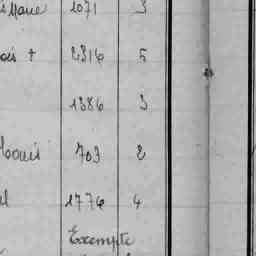 Marie 1071 3
ois + 2316 5
1386 3
Louis 703 2
el 1776 4
Exempte